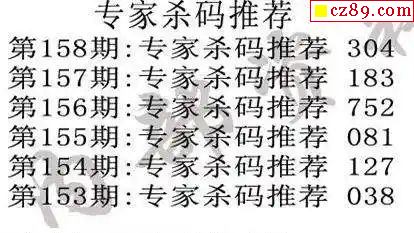 cz89.com
专家杀码推荐
第158期:专家杀码推荐 304
第157期:专家杀码推荐 183
第156期:专家杀码推荐 752
第155期:专家杀码推荐 081
第154期:专家杀码推荐 127
第153期:专家杀码推荐 038